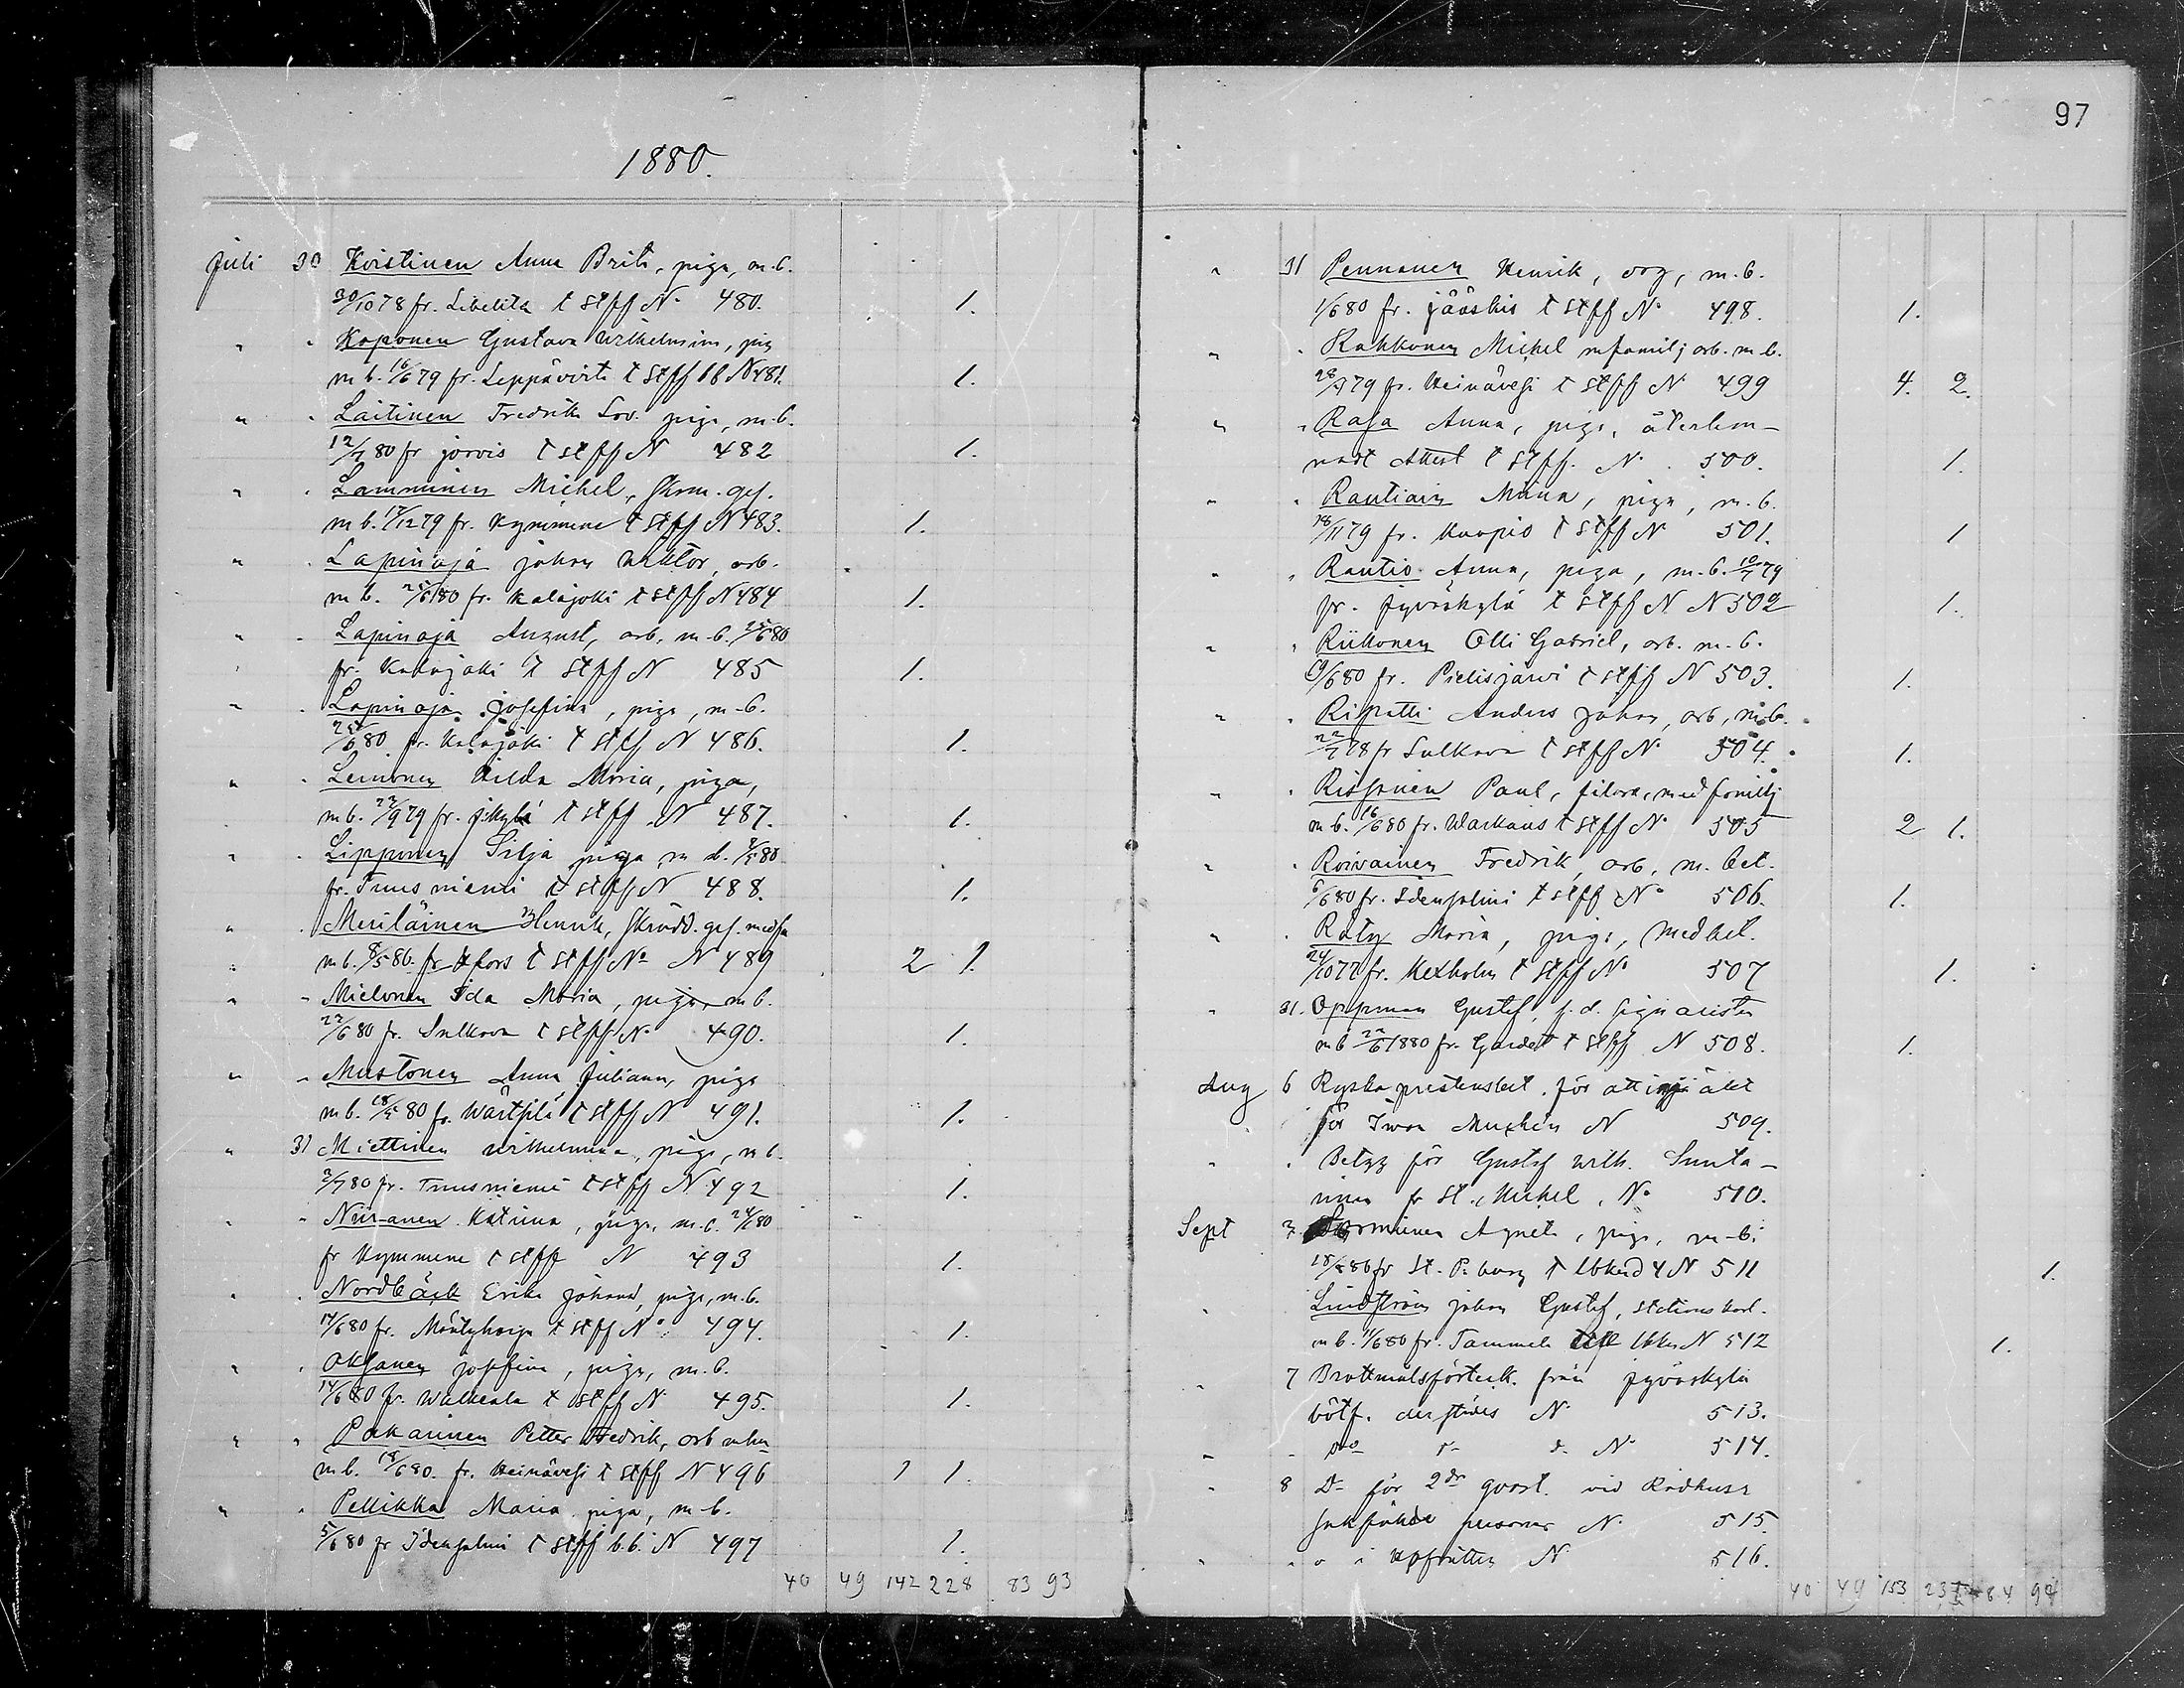 97
1880.
Juli 30 Kvistinen Anna Brita, piga, m.b.
30/10 78 fr. Libelits t Stff No 480. 1.
" " Koponen Gustava Wilhelmina, pig
m b. 16/6 79 fr. Leppävirta t Stff N 481. 1.
" " Laitinen Fredrika Lov. piga, m.b.
12/7 80 fr jorois t Stff N 482 1.
" " Lamminen Michel, skom. ges.
m b. 17/12 79 fr. Kymmene t Stff N 483. 1.
" " Lapinoja johan Wiktor, arb.
m b. 25/6 80 fr. Kalajoki t Stff N 484 1.
" " Lapinoja August, arb, m-b. 25/6 80
fr. Kalajoki t Stff N 485 1.
" " Lapinoja Josefina, piga, m-b.
25/6 80 fr. Kalajoki t Stff N 486. 1.
" " Leinonen Hilda Maria, piga,
m b. 23/9 79 fr. jkylä t Stff N 487. 1.
" " Lipponen Silja piga m b. 9/5 80
fr. Tuusniemi t Stff N 488. 1.
" " Meriläinen Henrik, skrädd. ges. med fa
m b. 8/5 80. fr Hfors t Stff No N 489 2 1.
" " Mielonen Ida Maria, piga, m b.
22/6 80 fr. Sulkava t Stff No 490. 1.
" " Mustonen Anna Juliana, piga
m b. 18/5 80 fr. Wärtsilä t Stff N 491. 1.
" 31 Miettinen Wilhelmina, piga, m b.
3/7 80 fr. Tuusniemi t Stff N 492 1.
" " Niiranen Katrina, piga, m.b. 24/6 80
fr Kymmene t Stff N 493 1.
" " Nordbäck Erika johanna, piga, m.b.
14/6 80 fr. Mäntyharju t Stff No 494. 1.
" " Oksanen josefina, piga, m.b.
14/6 80 fr. Walkeala t Stff N 495. 1.
" " Pakarinen Petter Fredrik, arb
m b. 18/6 80. fr. Heinävesi t Stff N 496 1 1.
" " Pellikka Maria piga, m-b.
5/6 80 fr Idensalmi t Stff b.b. N 497 1.
40 49 142 228 83 93
" 31 Pennanen Henrik, drg, m.b.
1/6 80 fr. jääskis t Stff No 498. 1.
" " Rahkonen Michel m familj arb. m b.
28/7 79 fr. Heinävesi t Stff N 499 4. 2.
" " Rasa Anna, piga, återlem-
nadt Attest t Stff. N. 500. 1.
" " Rautiain Miina, piga, m.b.
18/11 79 fr. Kuopio t Stff N 501. 1
" " Rautio Anna, piga, m.b. 10/7 79
fr. jyväskylä t Stff N N 502 1.
" " Riikonen Olli Gabriel, arb. m.b.
19/6 80 fr. Pielisjärvi t Stff N 503. 1.
" " Ripatti Anders Johan, arb, m.b.
22/7 78 fr Sulkava t Stff No 504. 1.
" " Rissanen Paul, filare, med familj
m b. 16/6 80 fr. Warkaus t Stff No 505 2 1.
" " Roivainen Fredrik, arb, m. bet.
6/6 80 fr. Idensalmi t Stff No 506. 1.
" " Räty Maria, piga, med bet.
24/10 77 fr. Kexholm t Stff No 507 1.
" 31. Oppman Gustaf, f.d. signalisten
m b 22/6 1880 fr. Gardet t Stff N 508. 1.
Aug 6 Ryska prestensbet. för att ingå äkt
för Iwan Muchin N 509.
" " Betyg för Gustaf Wilh. Smita-
inen fr St. Michel. No 510.
Sept 3. Agneta, piga, m-b.
18/5 80 fr St. P.burg t N 511 1.
" Lindström johan Gustaf, stations karl.
m b. 11/6 80 fr. Tammela N 512 1.
" 7 Brottmålsförteck. från jyväskylä
N. 513.
" " Do d- d- No 514.
" 8 D- för 2dr qvart. vid Rådhusr
sakfälde personer N. 515.
" " " i Kpfrätten N 516.
40 49 153 237 84 94